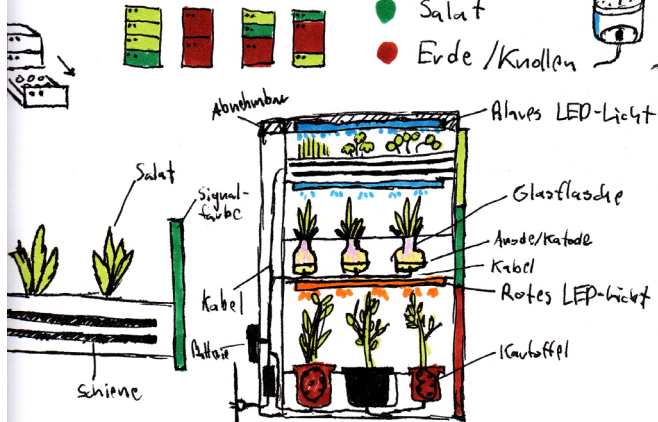 Salat
Erde/Knollen
Abnehmbar
Blaues LED-Licht
Salat
Signal-
farbe
Glasflasche
Anode/Katode
Kabel
Kabel
Rotes LED-Licht
Batterie
Kartoffel
Schiene